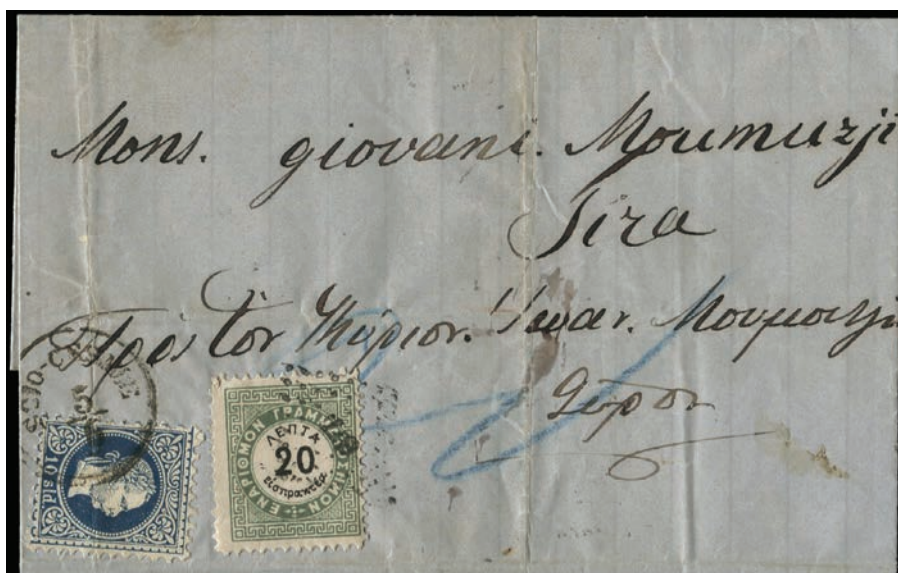 Mons. giovani. Moumuzji
Sira
Πρός τὸν Κύριον. Ἰωάν. Μουμουτζῆ
Σύρον
SCIO-CESME
10 sld
ΕΝΑΡΙΘΜΟΝ ΓΡΑΜΜΑΤΟΣΗΜΟΝ
ΛΕΠΤΑ
20
εἰσπρακτέα